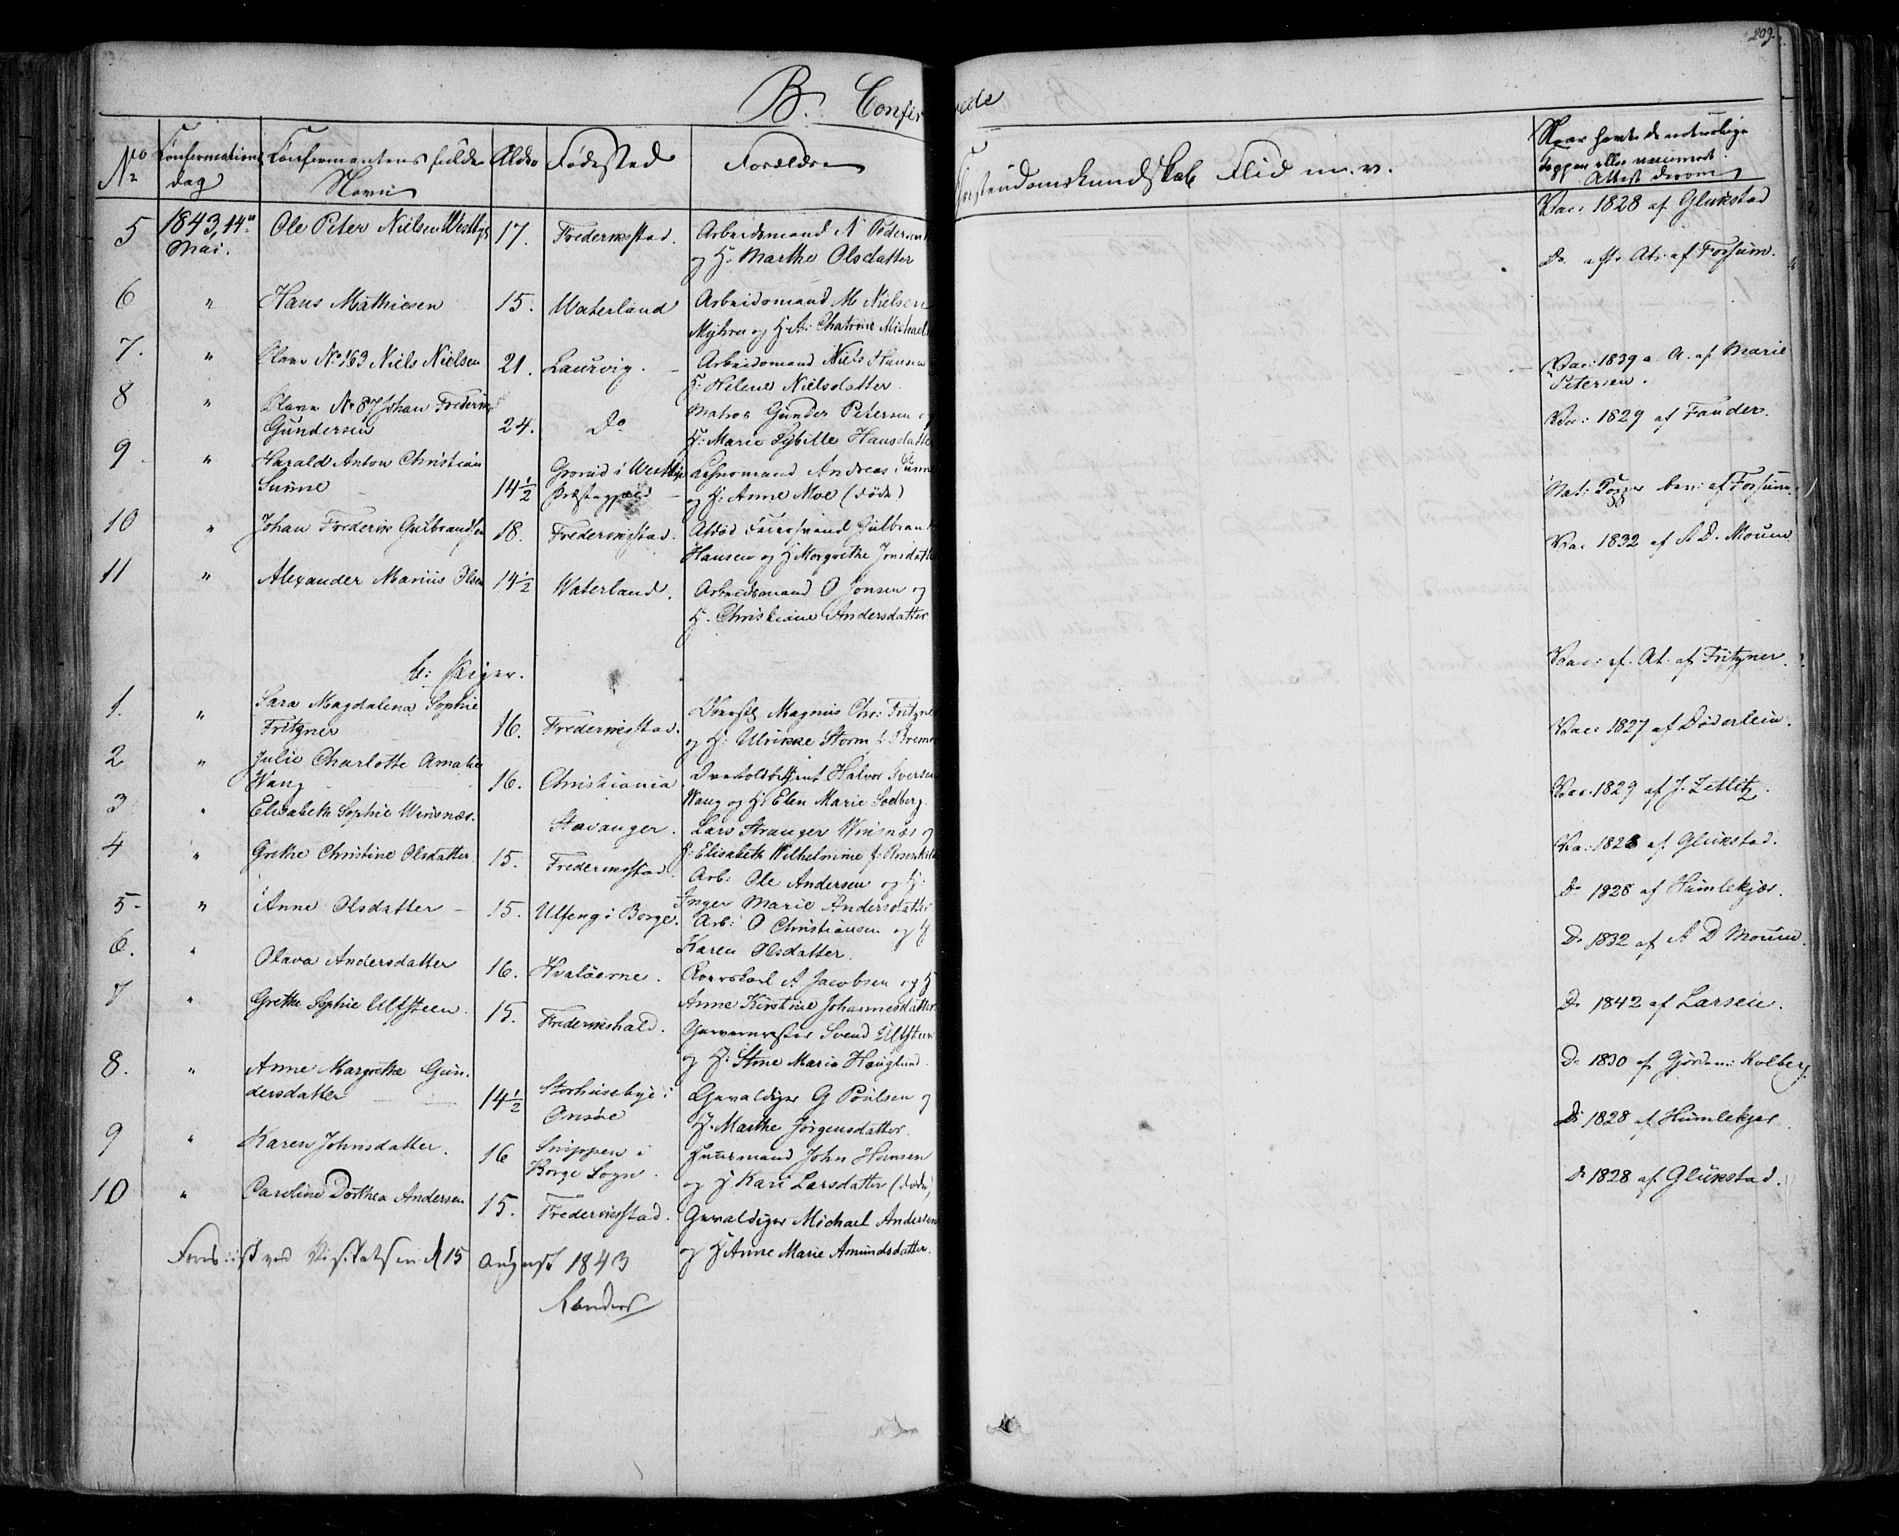 209.
B. Confirmerede
No
Confirmations
dag
Confirmantens fulde
Navn
Alder
Fødested
Forældre
Christendomskundskab Flid m. v.
Naar havte de naturlige
Kopper eller vaccineret.
Attest derom
5 1843, 14de Mai. Ole Peter Nielsen Westbye 17. Frederikstad. Arbeidsmand N Pedersen
og H: Marthe Olsdatter
Vac: 1828 af Glükstad
6 " Hans Mathiesen 15. Waterland Arbeidsmand M Nielsen
Myhre og H: A: Chatrine Michaels
Do efter At: af Fossum.
7. " Slave No 163 Niels Nielsen 21. Laurvig. Arbeidsmand Niels Hansen
H: Helene Nielsdatter.
Vac: 1839 e. A. af Marie
Petersen.
8 " Slave No 87 Johan Frederik
Gundersen 24. Do Matros Gunder Petersen og
H: Marie Sybille Hansdatter
Vac: 1829 af Fander.
9 " Harald Anton Christian
Sunne 14½ Grorud i Westbye
Præstegjæld Andreas Sunne
og H: Anne Moe (døde)
Nat: Kopper af Fossum.
10 " Johan Frederik Gulbrandsen 18. Frederikstad. Afdød Gulbrand
Hansen og H Margrethe Jonsdatter
Vac: 1832 af A D. Moum
11 " Alexander Marius Olsen 14½ Waterland. Arbeidsmand O Jonsen og
H. Christiane Andersdatter
b: Piger.
1. " Sara Magdalena Sophie
Fritzner 16. Frederikstad. Magnus Chr: Fritzner
og H: Ulrikke Storm f: Bremer
Vac: ef. At. af Fritzner.
2 " Julie Charlotte Amalie
Wang 16. Christiania Halvor Iversen
Wang og H: Elen Marie Sodberg.
Vac: 1827 af Döderlein.
3 " Elisabeth Sophie Winsnæs. Stavanger. Lars Stranger Winsnæs og
H: Elisabeth Wilhelmine f: Rosenkilde
Vac: 1829 af J. Zetlitz.
4 " Grethe Christine Olsdatter. 15. Frederikstad. Arb: Ole Andersen og H:
Inger Marie Andersdatter
Va: 1828 af Glükstad.
5. " Anne Olsdatter 15. Ulfeng i Borge. Arb: O Christiansen og H
Karen Olsdatter.
Do 1828 af Humlekjær.
6. " Olava Andersdatter 16. Hvaløerne. A Jacobsen og H
Anne Kirstine Johannesdatter
Do 1832 af A D Moum.
7 " Grethe Sophie Ulfsteen. 15. Frederikshald. Garvermester Svend Ulfsteen
og H: Stine Marie Hauglund.
Do 1842 af Larsen.
8. " Anne Margrethe Gun-
dersdatter 14½ Storhusebye i
Onsøe Gevaldiger G Poulsen og
H. Marthe Jörgensdatter.
Do 1830 af Gjordem: Kolberg.
9 " Karen Johnsdatter. 16 Snippen i
Borge Sogn. Huusmand John Hansen
og H Kari Larsdatter (døde)
Do 1828 af Humlekjær.
10 " Caroline Dorthea Andersen 15. Frederikstad. Gevaldiger Michael Andersen
og H Anne Marie Amundsdatter.
Do 1828 af Glükstad.
Foreviist ved Visitatsen d 15 August 1843